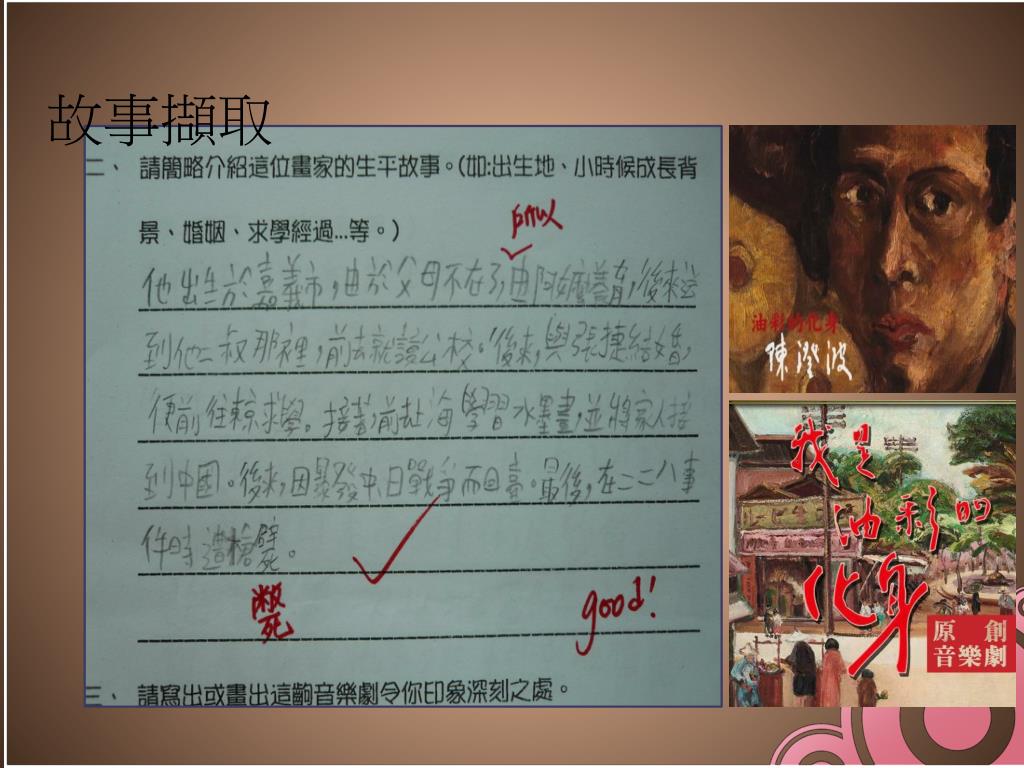 故事擷取
二、 請簡略介紹這位畫家的生平故事。(如:出生地、小時候成長背
景、婚姻、求學經過...等。)
所以
他出生於嘉義市,由於父母不在了,由阿嬤養育,後來送
到他二叔那裡,前去就讀公校。後來,與張捷結婚,
便前往東京求學。接著,前赴上海學習水墨畫,並將家人接
到中國。後來,因爆發中、日戰爭而回臺。最後,在二二八事
件時遭槍
斃
good!
三、 請寫出或畫出這齣音樂劇令你印象深刻之處。
油彩的化身
陳澄波
我是
油彩的
化身
原創
音樂劇